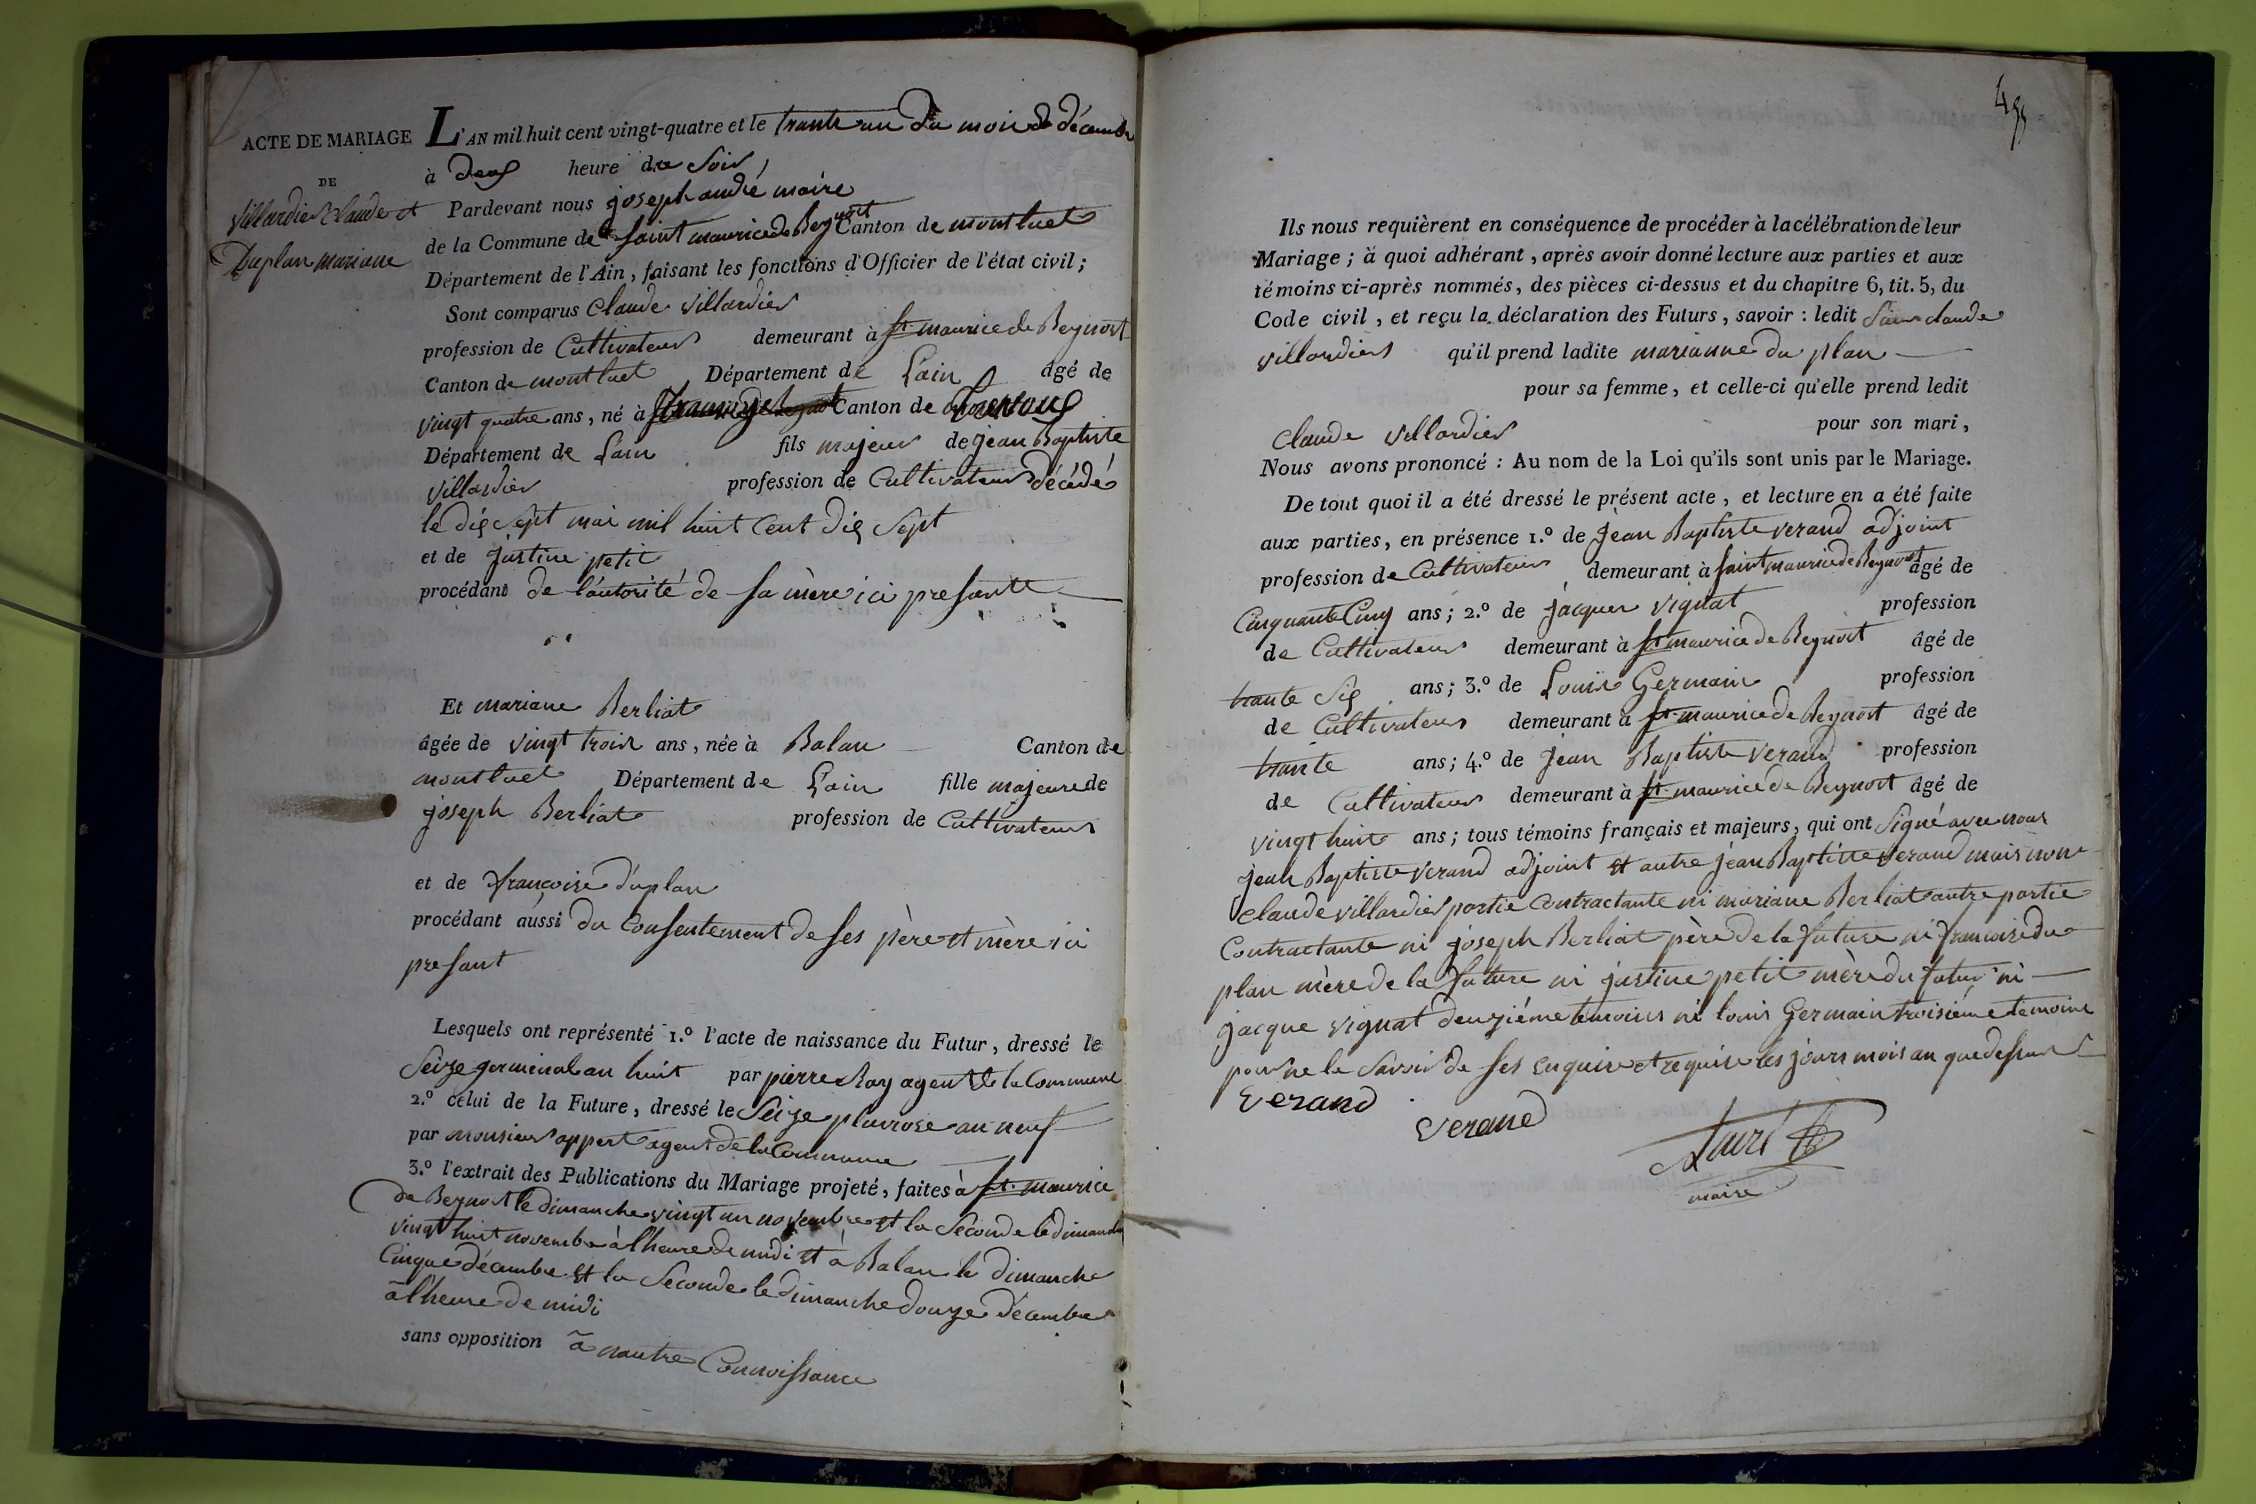 ACTE DE MARIAGE
DE
Villardier Claude et
Duplan mariane
L'AN mil huit cent vingt-quatre et le trante un du mois de décembre
à deux heure du Soir,
Pardevant nous joseph andré maire
de la Commune de Saint maurice de Beynost Canton de montluel
Département de l'Ain, faisant les fonctions d'Officier de l'état civil;
Sont comparus Claude villardier
profession de Cultivateur demeurant à St. maurice de Beynost
Canton de montluel Département de L'ain âgé de
vingt quatre ans, né à Canton de
Département de L'ain fils majeur de jean Baptiste
villardier profession de Cultivateur décédé
le dix sept mai mil huit Cent dix Sept
et de justine petit
procédant de l'autorité de sa mère ici presante
Et mariane Berliat
âgée de vingt trois ans, née à Balan Canton de
montluel Département de L'ain fille majeure de
joseph Berliat profession de Cultivateur
et de françoise duplan
procédant aussi du Consentement de ses père et mère ici
presant
Lesquels ont représenté 1.º l'acte de naissance du Futur, dressé le
Seize germinal an huit par pierre Ray agent de la Commune
2.º celui de la Future, dressé le Seize pluviose an neuf
par monsieur appert agent de la Commune
3.º l'extrait des Publications du Mariage projeté, faites à St. maurice
de Beynost le dimanche vingt un novembre et la Seconde le dimanche
vingt huit novembre à l'heure de midi et à Balan le dimanche
Cinque décembre et la Seconde le dimanche douze décembre
à l'heure de midi
sans opposition à nautre Connoissance
49
Ils nous requièrent en conséquence de procéder à la célébration de leur
Mariage; à quoi adhérant, après avoir donné lecture aux parties et aux
témoins ci-après nommés, des pièces ci-dessus et du chapitre 6, tit. 5, du
Code civil, et reçu la déclaration des Futurs, savoir: ledit Sieur claude
villardier qu'il prend ladite marianne du plan
pour sa femme, et celle-ci qu'elle prend ledit
Claude villardier pour son mari,
Nous avons prononcé: Au nom de la Loi qu'ils sont unis par le Mariage.
De tout quoi il a été dressé le présent acte, et lecture en a été faite
aux parties, en présence 1.º de Jean Baptiste verand adjoint
profession de Cultivateur demeurant à Saint maurice de Beynost âgé de
Cinquante Cinq ans; 2.º de jacques vignat profession
de Cultivateur demeurant à St. maurice de Beynost âgé de
trante Six ans; 3.º de Louis Germain profession
de Cultivateur demeurant à St. maurice de Beynost âgé de
trante ans; 4.º de Jean Baptiste verand profession
de Cultivateur demeurant à St. maurice de Beynost âgé de
vingt huit ans; tous témoins français et majeurs, qui ont Signé avec nous
jean Baptiste verand adjoint et autre jean Baptiste verand mais non
Claude villardier partie Contractante ni mariane Berliat autre partie
Contractante ni joseph Berliat père de la future ni françoise du
plan mère de la future ni justine petit mère du futur ni
jacque vignat deuzième temoins ni louis Germain troisième temoins
pour ne le Savoir de ses enquis et requis les jours mois an que dessus
verand
verand
André
maire